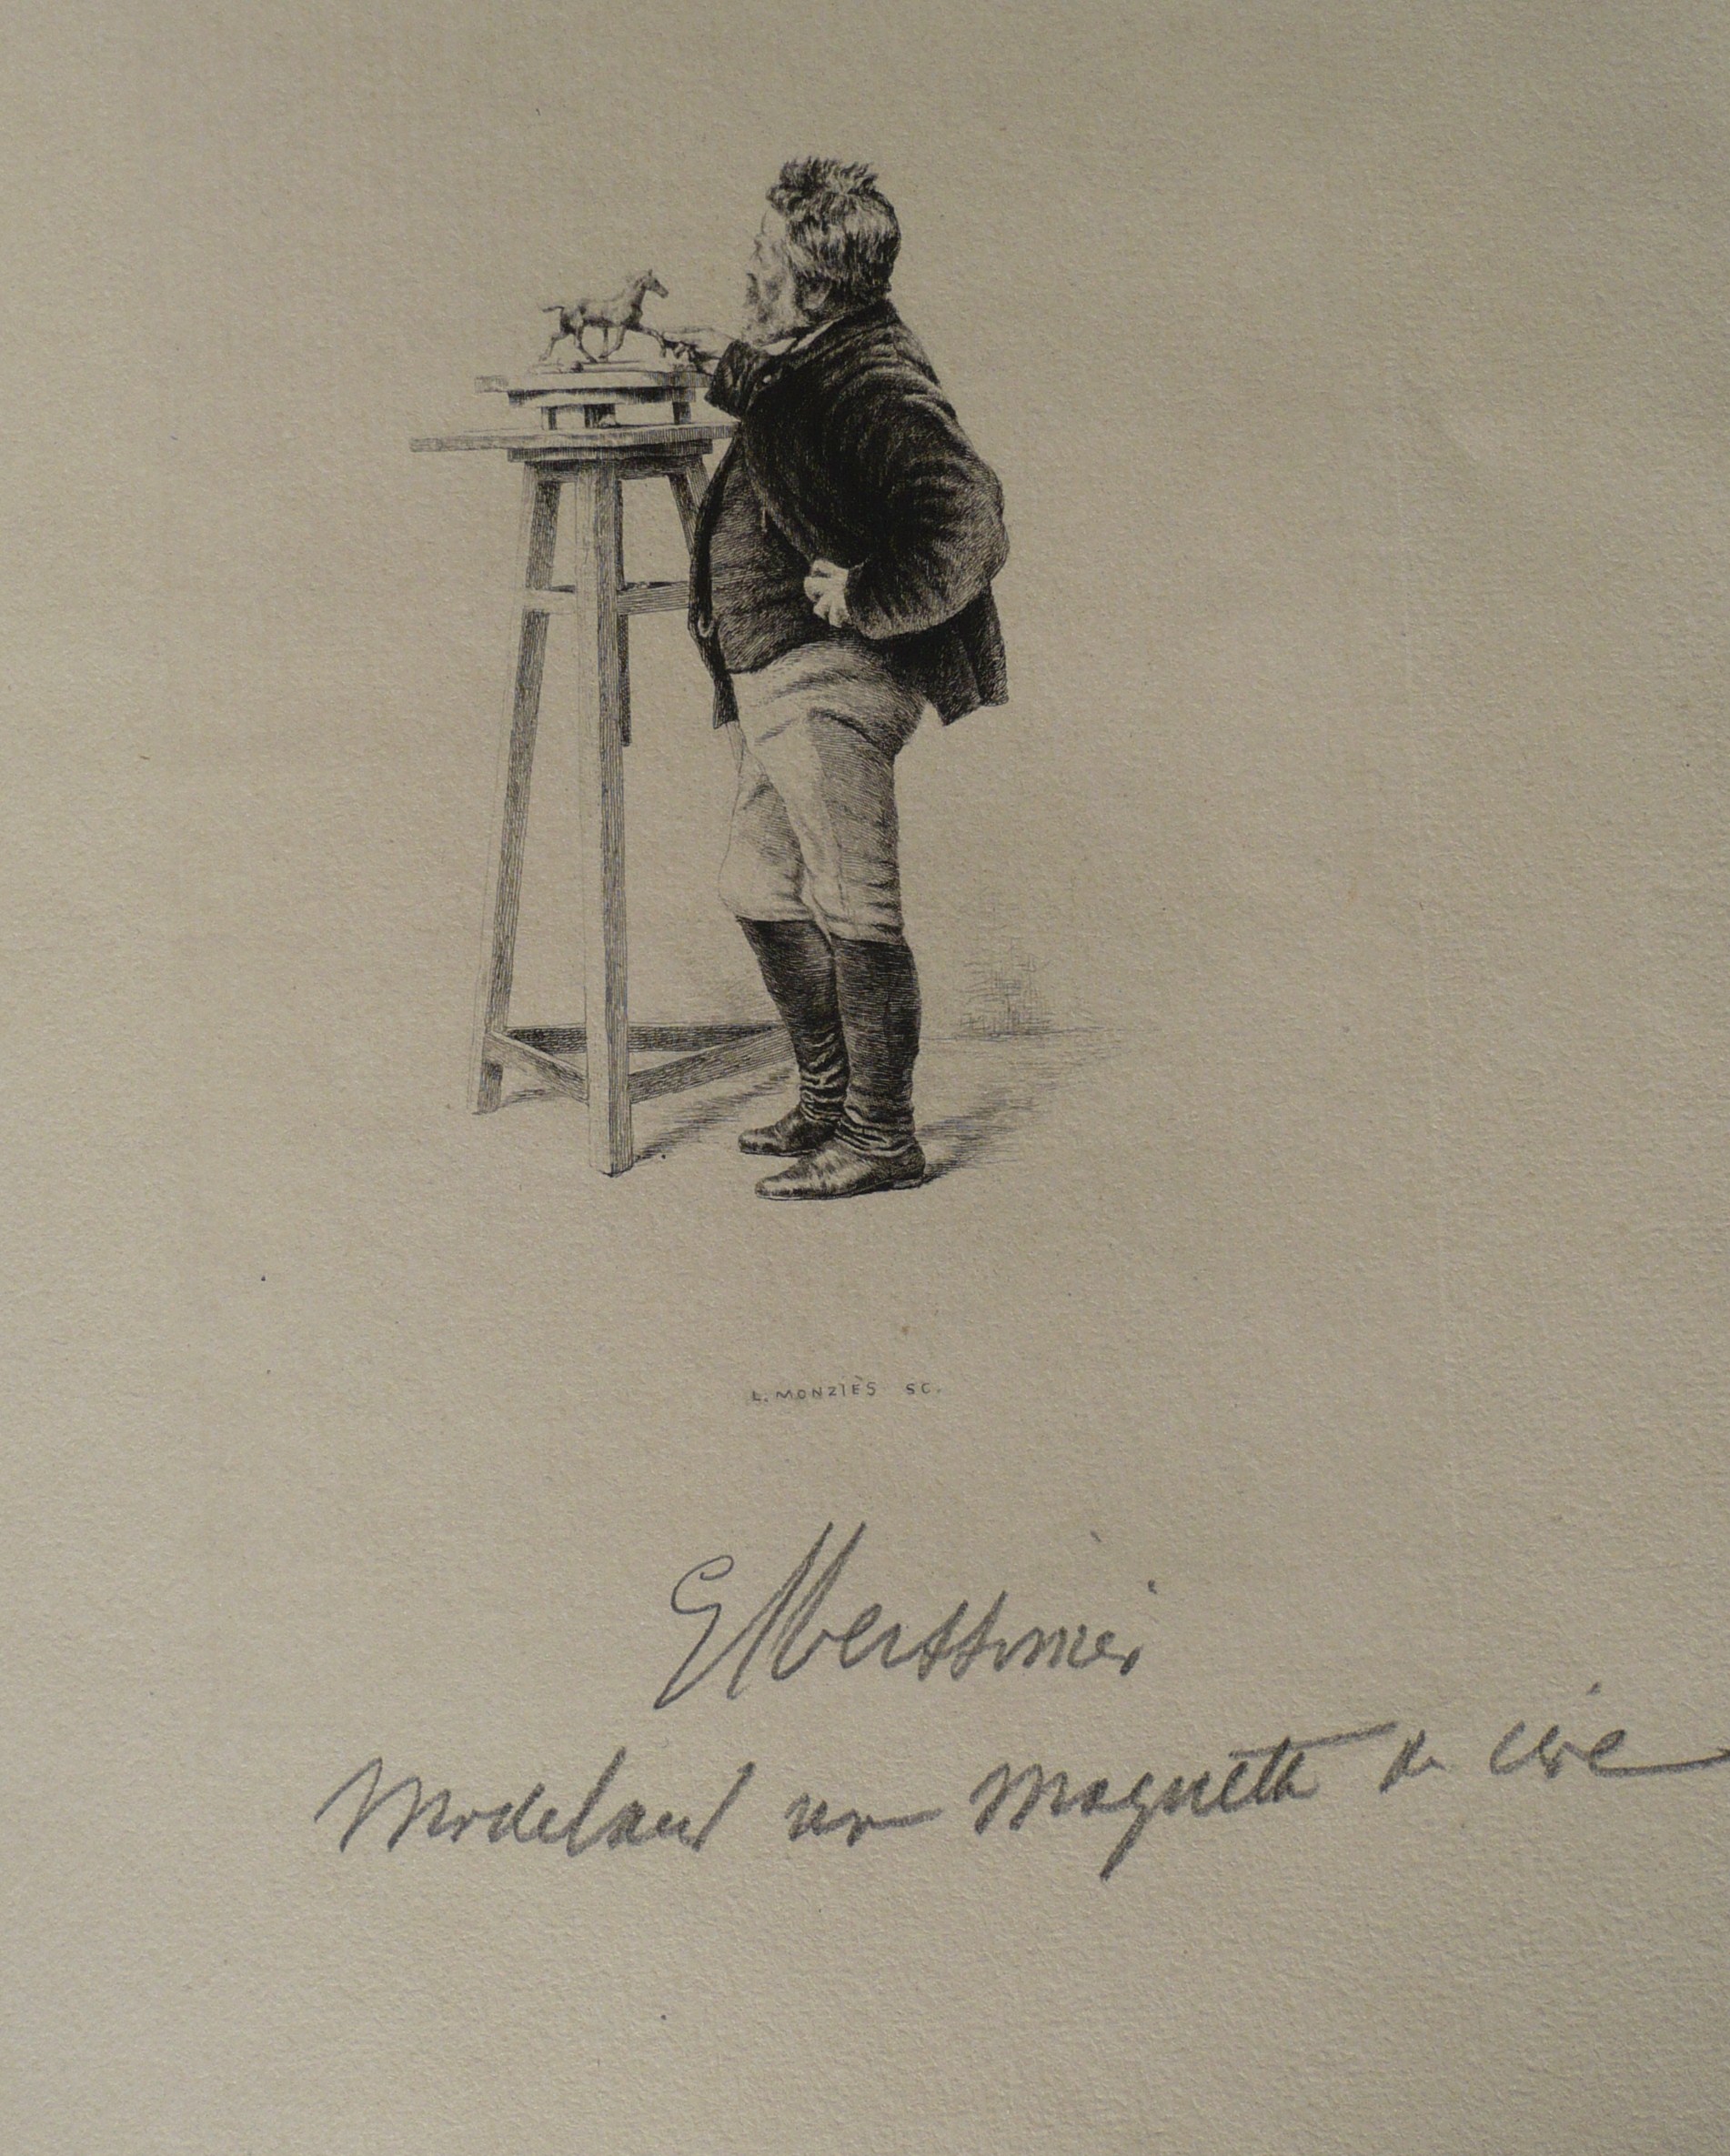 L. MONZIÈS SC.
EMeissonier
Modelant une Maquette de cire